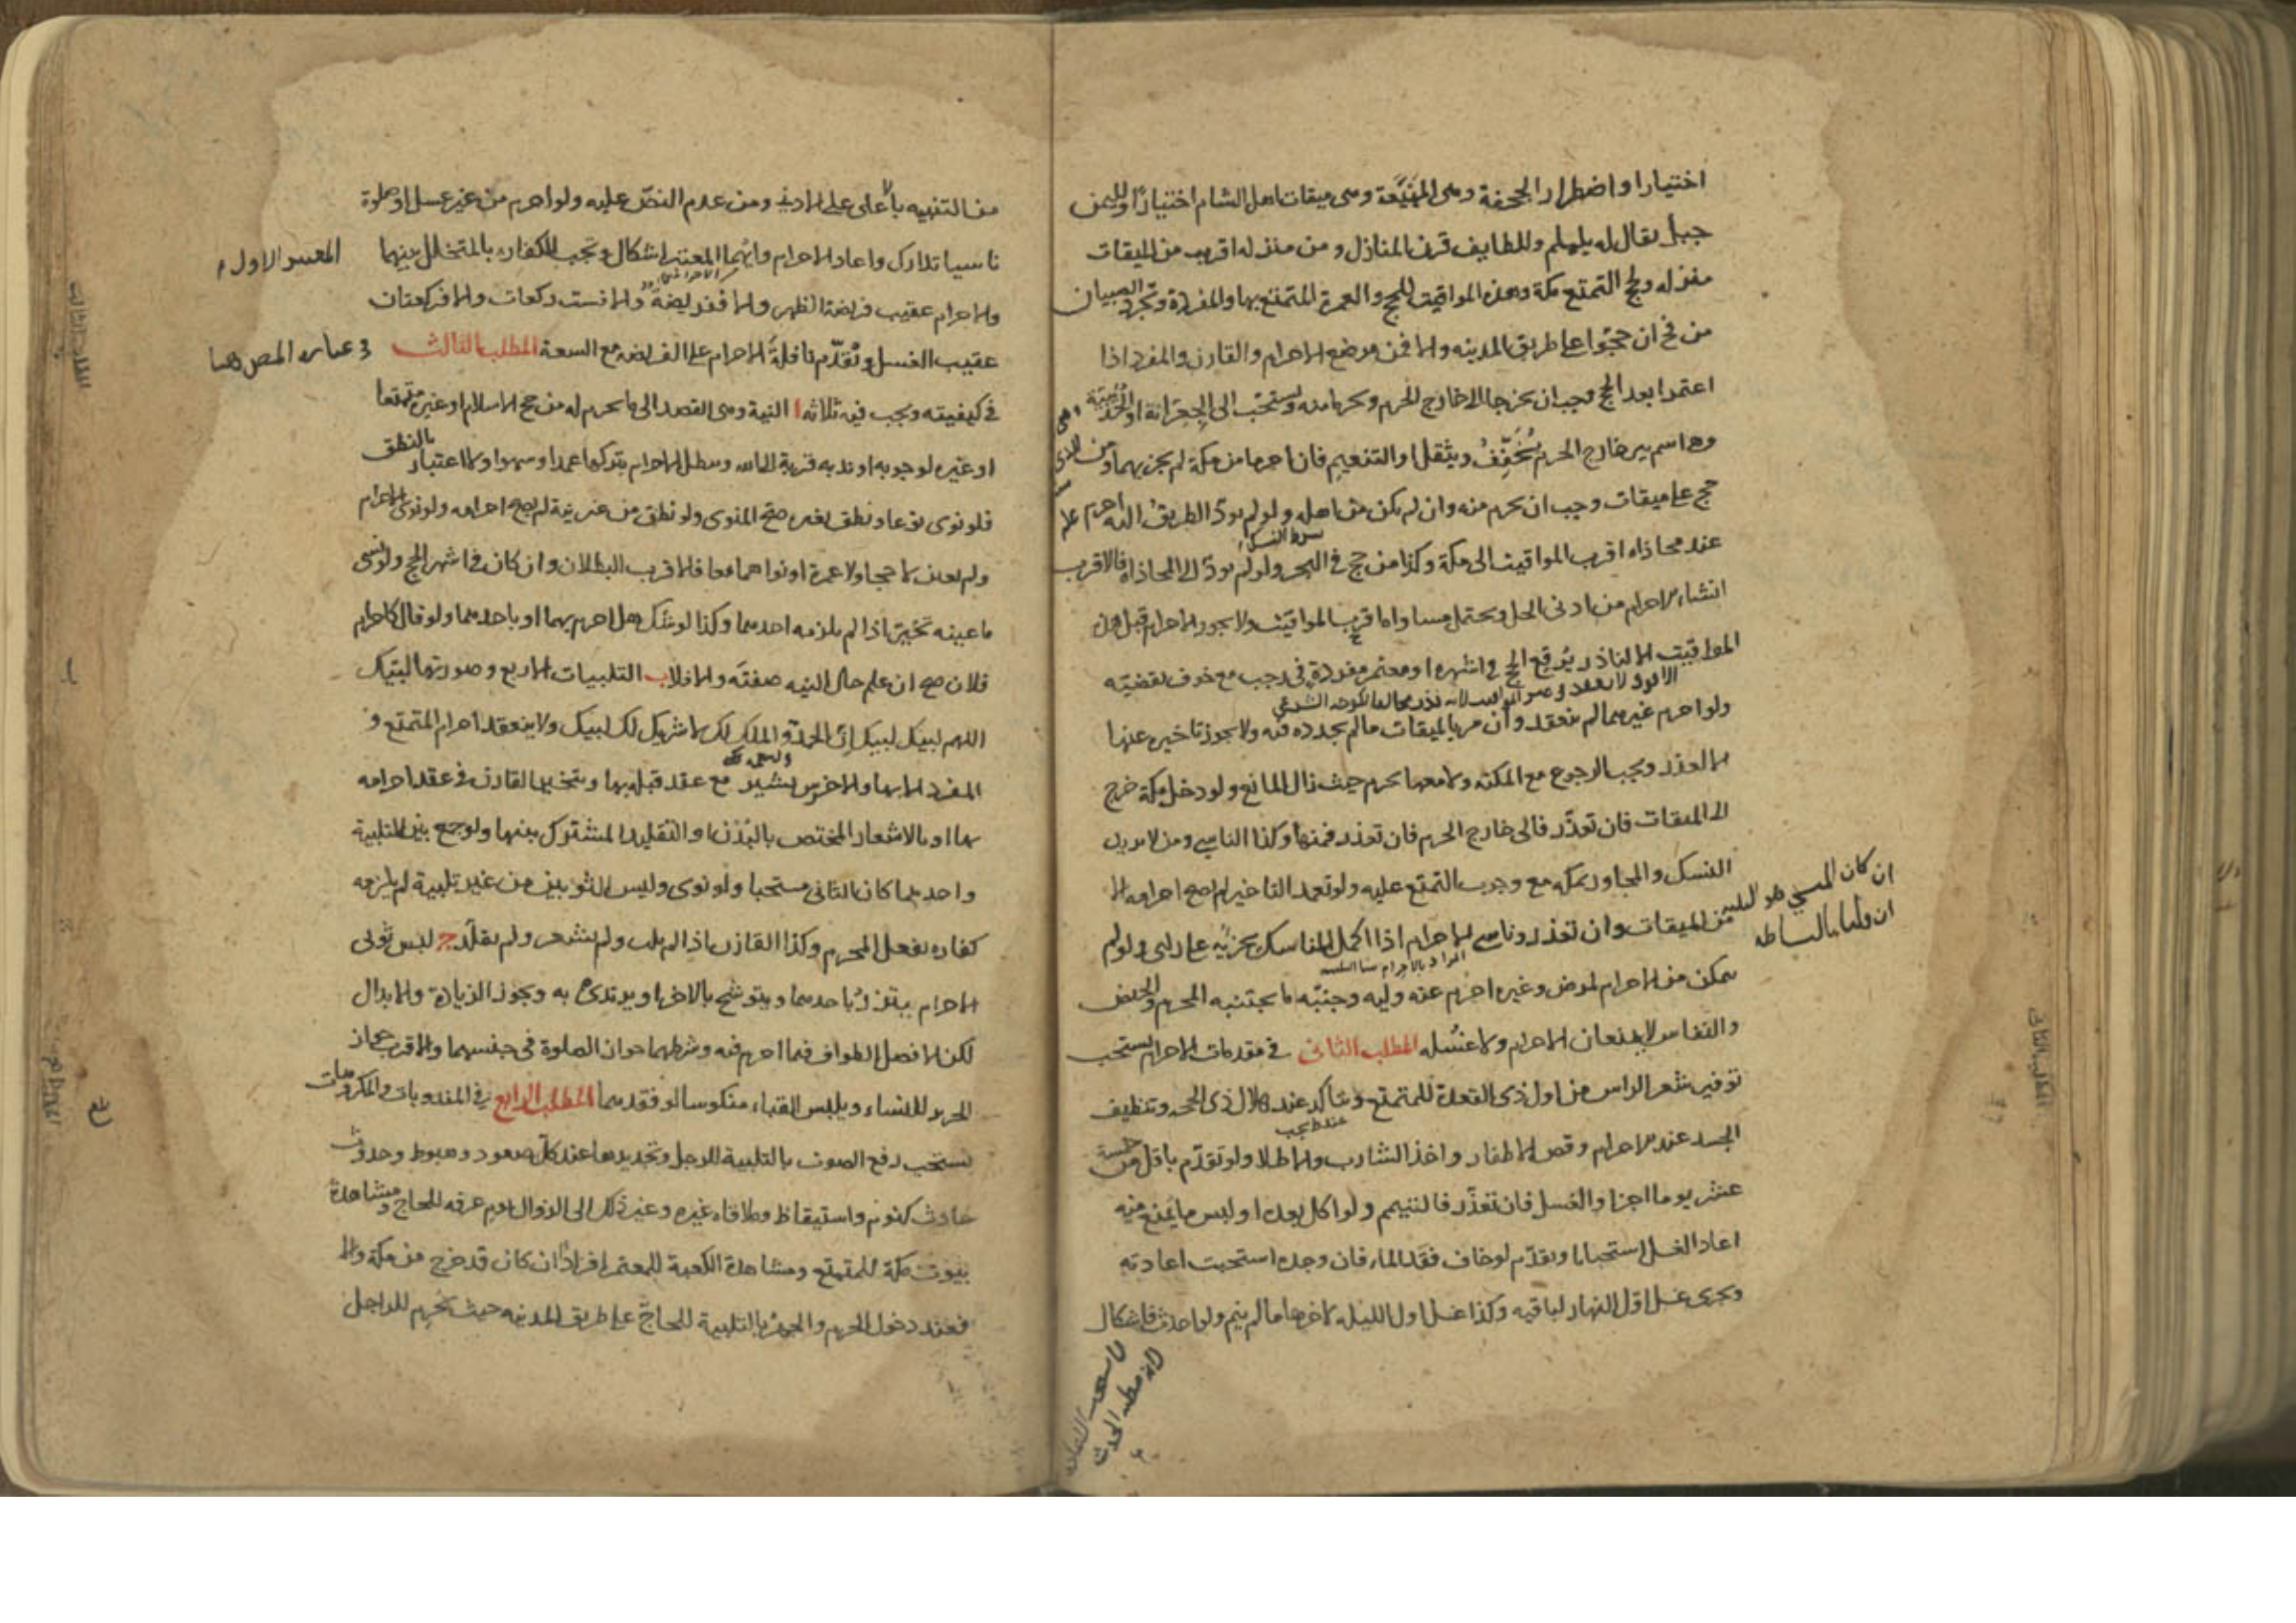 اختيارا واضطرارا الجحفة وهي المهيعة وهي ميقات اهل الشام اختيارا ولليمن
جبل يقال له يلملم وللطايف قرن المنازل ومن منزله اقرب من الميقات
منزله ولحج التمتع مكة وهذه المواقيت للحج والعمرة المتمتع بها والمفردة وتجرد الصبيان
من فخ ان حجوا على طريق المدينه والا فمن موضع الاحرام والقارن والمفرد اذا
اعتمرا بعد الحج وجب ان يخرجا الى خارج الحرم ويحرما منه ويستحب الى الجعرانة او الحديبية
وهي اسم بير خارج الحرم يخفف ويثقل او التنعيم فان احرما من مكة لم يجز بهما ومن
حج على ميقات وجب ان يحرم منه وان لم يكن من اهله ولو لم يود الطريق اليه احرم
عند محاذاه اقرب المواقيت الى مكة وكذا من حج في البحر ولو لم يود الى المحاذاة فالاقرب
انشاء الاحرام من ادنى الحل ويحتمل مساواة اقرب المواقيت ولا يجوز الاحرام قبل هذه
المواقيت الا لناذر يوقع الحج في اشهره او معتمر مفردة في رجب مع خوف تقضيه
ولو احرم غيرهما لم ينعقد وان مر بالميقات ما لم يجدده فيه ولا يجوز تاخيره عنها
الا لعذر ويجب الرجوع مع المكنه ولا معها يحرم حيث زال المانع ولو دخل مكة خرج
الى الميقات فان تعذر فالى خارج الحرم فان تعذر فمنها وكذا الناسي ومن لا يريد
النسك والمجاور بمكه مع وجوب التمتع عليه ولو تعمد التاخير لم يصح احرامه الا
من الميقات وان تعذر وناسي الاحرام اذا اكمل المناسك يجزيه على راى ولو لم
يتمكن من الاحرام لمرض وغيره احرم عنه وليه وجنبه ما يجتنبه المحرم والحيض
والنفاس لا يمنعان الاحرام ولا غسله المطلب الثانى في مقدمات الاحرام يستحب
توفير شعر الراس من اول ذى القعدة للمتمتع ويتاكد عند هلال ذى الحجه وتنظيف
الجسد عند الاحرام وقص الاظفار واخذ الشارب والاطلا ولو تقدم باقل من خمسة
عشر يوما اجزا والغسل فان تعذر فالتيمم ولو اكل بعده او لبس ما يمنع منه
اعاد الغسل استحبابا ويقدم لو خاف فقد الماء فان وجده استحبت اعادته
ويجزى غسل اول النهار لباقيه وكذا غسل اول الليل لاخرها ما لم ينم ولو احدث فاشكال
ان كان المنسي هو
ان قلنا بالبساطه
من التنبيه بالاعلى على الادنى ومن عدم النص عليه ولو احرم من غير غسل او صلوة
ناسيا تدارك واعاد الاحرام وايهما المعتبر اشكال وتجب الكفاره بالمتخلل بينهما
والاحرام عقيب فريضة الظهر والا ففريضة والا فست ركعات والا فركعتان
عقيب الغسل وتقدم نافلة الاحرام على الفريضه مع السعة المطلب الثالث
في كيفيته ويجب فيه ثلاثه ا النية وهي القصد الى ما يحرم له من حج الاسلام او غيره تمتعا
او غيره لوجوبه او ندبه قربة الى الله ويبطل الاحرام بتركها عمدا وسهوا ولا اعتبار بالنطق
فلو نوى نوعا ونطق بغيره صح المنوى ولو نطق من غير نية لم يصح احرامه ولو نوى الاحرام
ولم يعين لا حجا ولا عمرة او نواهما معا فالاقرب البطلان وان كان في اشهر الحج ولو نسى
ما عينه تخير اذا لم يلزمه احدهما وكذا لو شك هل احرم بهما او باحدهما ولو قال كاحرام
فلان صح ان علم حال النيه صفته والا فلا ب التلبيات الاربع وصورتها لبيك
اللهم لبيك لبيك ان الحمد والملك لك لا شريك لك لبيك ولا ينعقد احرام المتمتع و
المفرد الا بها والاخرس يشير مع عقد قبله بها ويتخير القارن في عقد احرامه
بها او بالاشعار المختص بالبدن او التقليد المشترك بينها ولو جمع بين التلبية
واحدهما كان الثانى مستحبا ولو نوى ولبس الثوبين من غير تلبية لم يلزمه
كفاره بفعل المحرم وكذا القارن اذا لم يلب ولم يشعر ولم يقلد ج لبس ثوبى
الاحرام يتزر باحدهما ويتوشح بالاخر او يرتدى به ويجوز الزيادة والابدال
لكن الافضل الطواف فيما احرم فيه وشرطهما جواز الصلوة في جنسهما والاقرب جواز
الحرير للنساء ويلبس القباء منكوسا لو فقدهما المطلب الرابع في المندوبات والمكروهات
يستحب رفع الصوت بالتلبية للرجل وتجديدها عند كل صعود وهبوط وحدوث
حادث كنوم واستيقاظ وملاقاه غيره وغير ذلك الى الزوال يوم عرفه للحاج ومشاهدة
بيوت مكة للمتمتع ومشاهدة الكعبة للمعتمر افرادا ان كان قد خرج من مكة والا
فعند دخول الحرم والجهر بالتلبية للحاج على طريق المدينه حيث يحرم للراجل